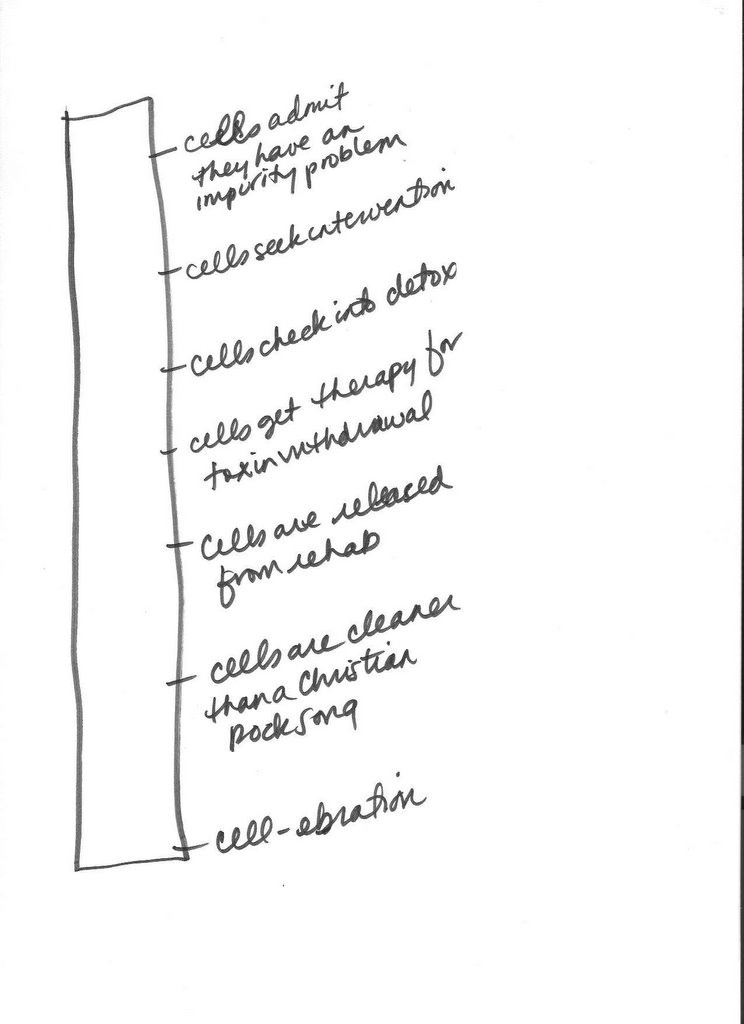 cells admit
they have an
impurity problem
cells seek intervention
cells check into detox
cells get therapy for
toxin withdrawal
cells are released
from rehab
cells are cleaner
than a Christian
rock song
cell-ebration